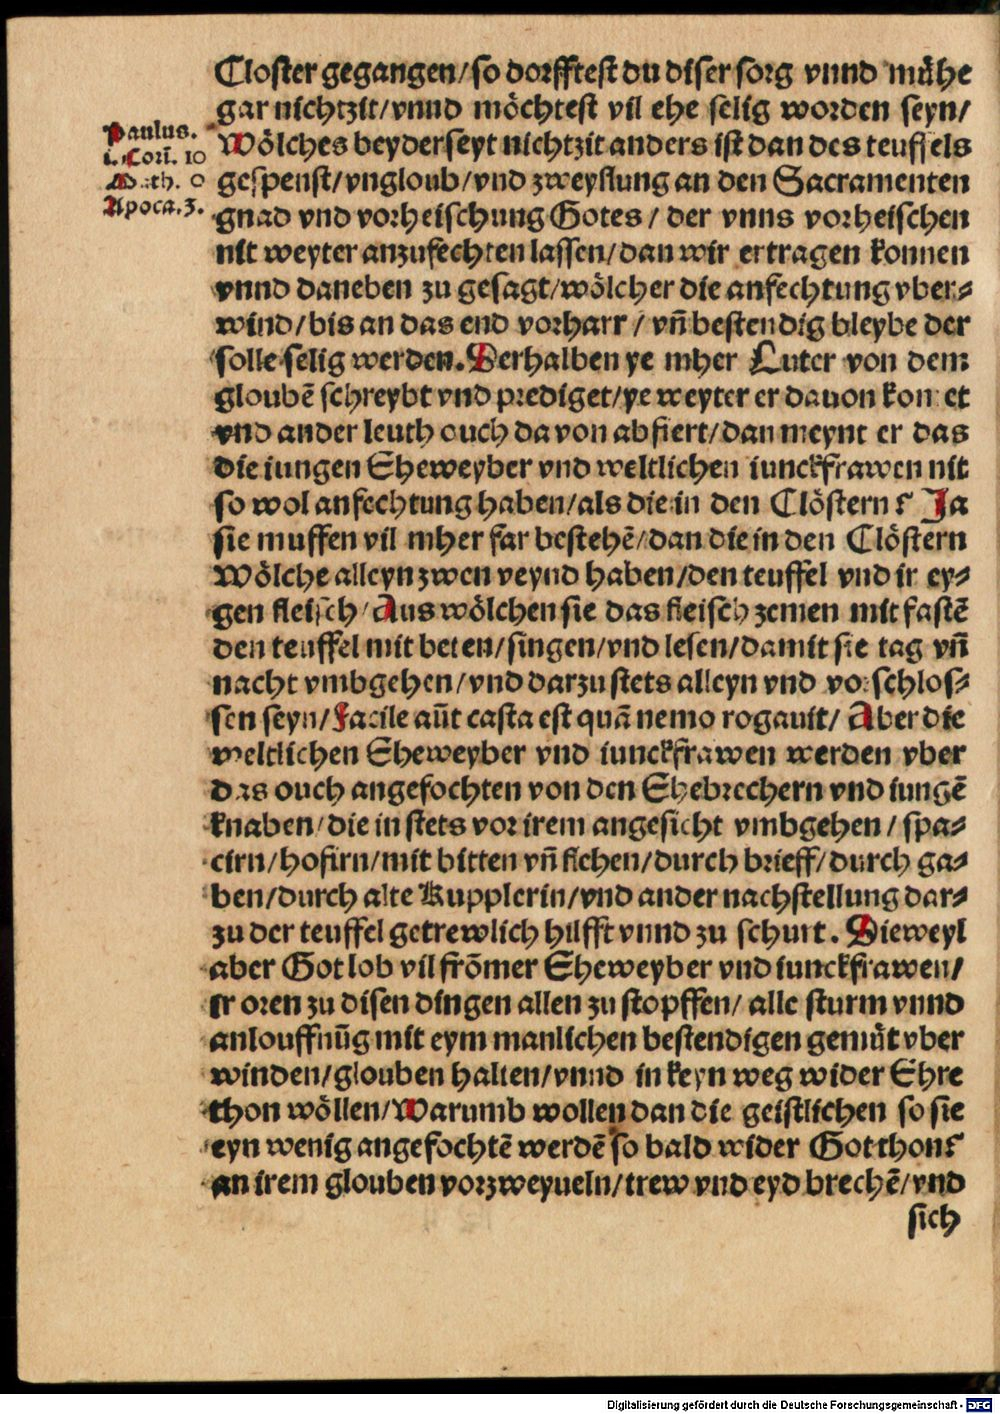 Closter gegangen/so dorfftest du diser sorg vnnd mühe
gar nichtzit/vnnd möchtest vil ehe selig worden seyn/
Wölches beyderseyt nichtzit anders ist dan des teuffels
gespenst/vngloub/vnd zweyflung an den Sacramenten
gnad vnd vorheischung Gotes/ der vnns vorheischen
nit weyter anzufechten lassen/dan wir ertragen konnen
vnnd daneben zu gesagt/wölcher die anfechtung vber⸗
wind/bis an das end vorharr/ vñ bestendig bleybe der
solle selig werden. Derhalben ye mher Luter von dem
gloubẽ schreybt vnd prediget/ye weyter er dauon komet
vnd ander leuth ouch da von abfiert/dan meynt er das
die iungen Eheweyber vnd weltlichen iunckfrawen nit
so wol anfechtung haben/als die in den Clöstern? Ja
sie mussen vil mher far bestehẽ/dan die in den Clöstern
Wölche alleyn zwen veynd haben/den teuffel vnd ir ey⸗
gen fleisch/Aus wölchen sie das fleisch zemen mit fastẽ
den teuffel mit beten/singen/vnd lesen/damit sie tag vñ
nacht vmbgehen/vnd darzu stets alleyn vnd vorschlos⸗
sen seyn/Facile aũt casta est quã nemo rogauit/ Aber die
weltlichen Eheweyber vnd iunckfrawen werden vber
das ouch angefochten von den Ehebrechern vnd iungẽ
knaben/die in stets vor irem angesicht vmbgehen/ spa⸗
cirn/hofirn/mit bitten vñ flehen/durch brieff/durch ga⸗
ben/durch alte Kupplerin/vnd ander nachstellung dar⸗
zu der teuffel getrewlich hilfft vnnd zu schurt. Dieweyl
aber Got lob vil frõmer Eheweyber vnd iunckfrawen/
ir oren zu disen dingen allen zu stopffen/ alle sturm vnnd
anlouffnũg mit eym manlichen bestendigen gemüt vber
winden/glouben halten/vnnd in keyn weg wider Ehre
thon wöllen/Warumb wollen dan die geistlichen so sie
eyn wenig angefochtẽ werdẽ so bald wider Got thon?
an irem glouben vorzweyueln/trew vnd eyd brechẽ/vnd
sich
Paulus.
i. Corĩ. 10
Math. 0
Apoca.3.
Digitalisierung gefördert durch die Deutsche Forschungsgemeinschaft - DFG